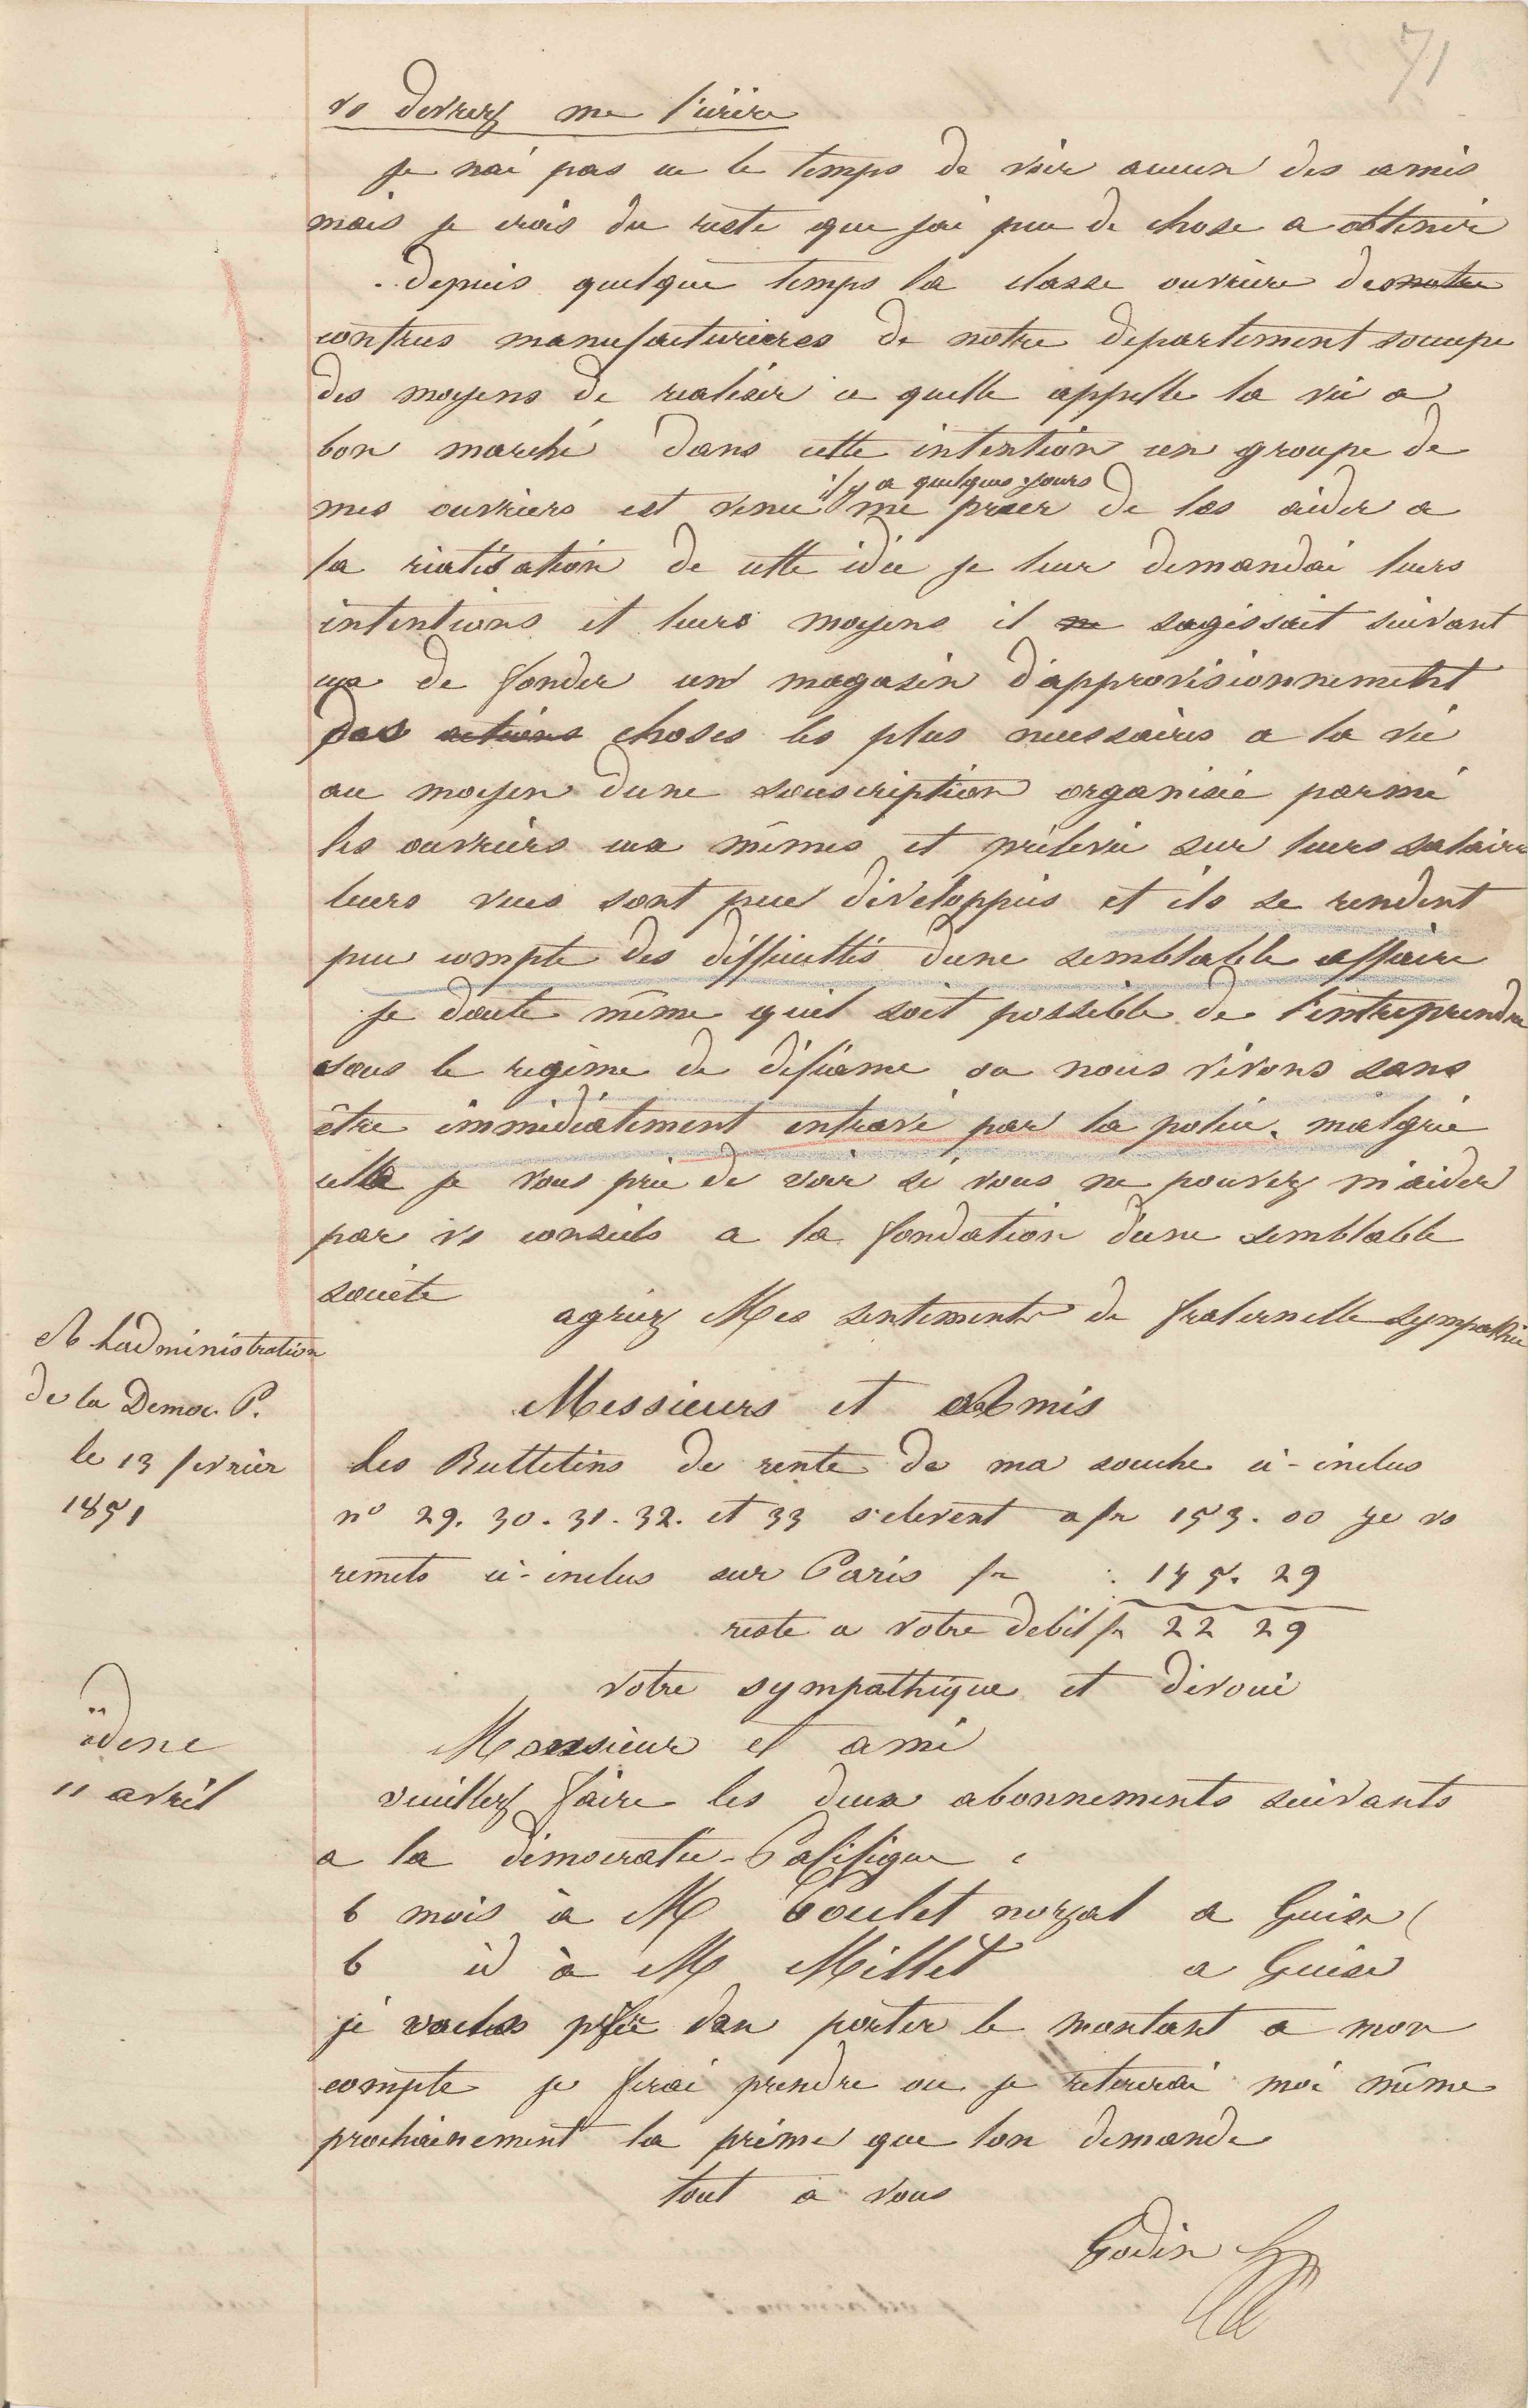 71
vs devrez me l'ecrire
je nai pas eu le temps de voir aucun des amis
mais je crois du reste que jai peu de chose a obtenir
depuis quelque temps la classe ouvriere des notre
centres manufacturieres de notre departement soccupe
des moyens de realiser ce quelle appelle la vie a
bon marché dans cette intention un groupe de
il y a quelques jours
mes ouvriers est venu me prier de les aider a
la réalisation de cette idée je leur demandai leurs
intentions et leurs moyens il ne sagissait suivant
eux de fonder un magasin d'approvisionnement
des actions choses les plus necessaires a la vie
au moyen dune souscription organisée parmi
les ouvriers eux mêmes et prélevée sur leurs salaire
leurs vues sont peu développés et ils se rendent
peu compte des difficultés dune semblable affaire
je doute même quil soit possible de l'entreprendre
sous le regime de défiance ou nous vivons sans
être immédiatement entravé par la police. malgrée
cela je vous prie de voir si vous ne pouvez m'aider
par vs conseils a la fondation dune semblable
societe
agréez Mes sentiments de fraternelle sympathie
A Ladministration
de la Democ. P.
le 13 fevrier
1851
Messieurs et Amis
Les Bulletins de rente de ma souche ci-inclus
n° 29. 30. 31. 32. et 33 s'elevent a fr 153.00 je vs
remets ci-inclus sur Paris fr 175.29
reste a votre debit fr 22 29
votre sympathique et dévoué
idene
11 avril
Monsieur et ami
veuillez faire les deux abonnements suivants
a la démocratie-Pacifique
6 mois à M Poulet nozal a Guise
6 id à M Millet a Guise
je vous prie den porter le montant a mon
compte je ferai prendre ou je retirerai moi même
prochainement la prime que lon demande
tout a vous
Godin